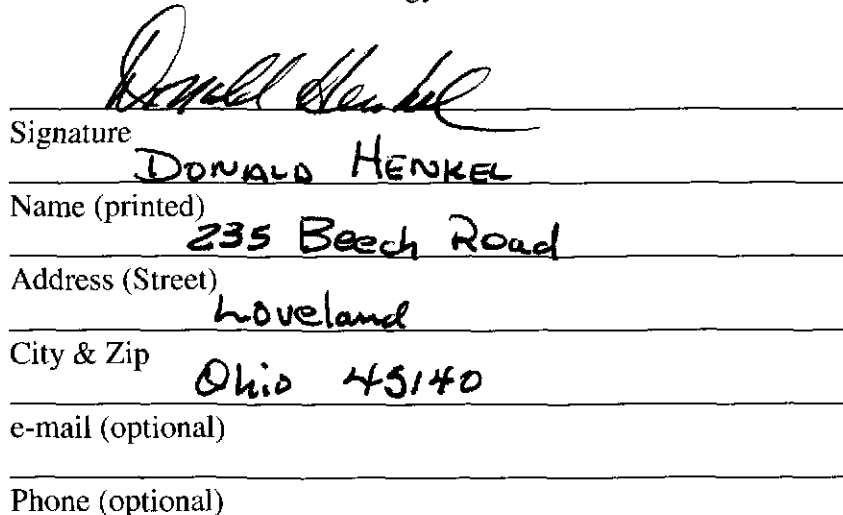 Donald Henkel
Signature
DONALD HENKEL
Name (printed)
235 Beech Road
Address (Street)
Loveland
City & Zip
Ohio 45140
e-mail (optional)
Phone (optional)